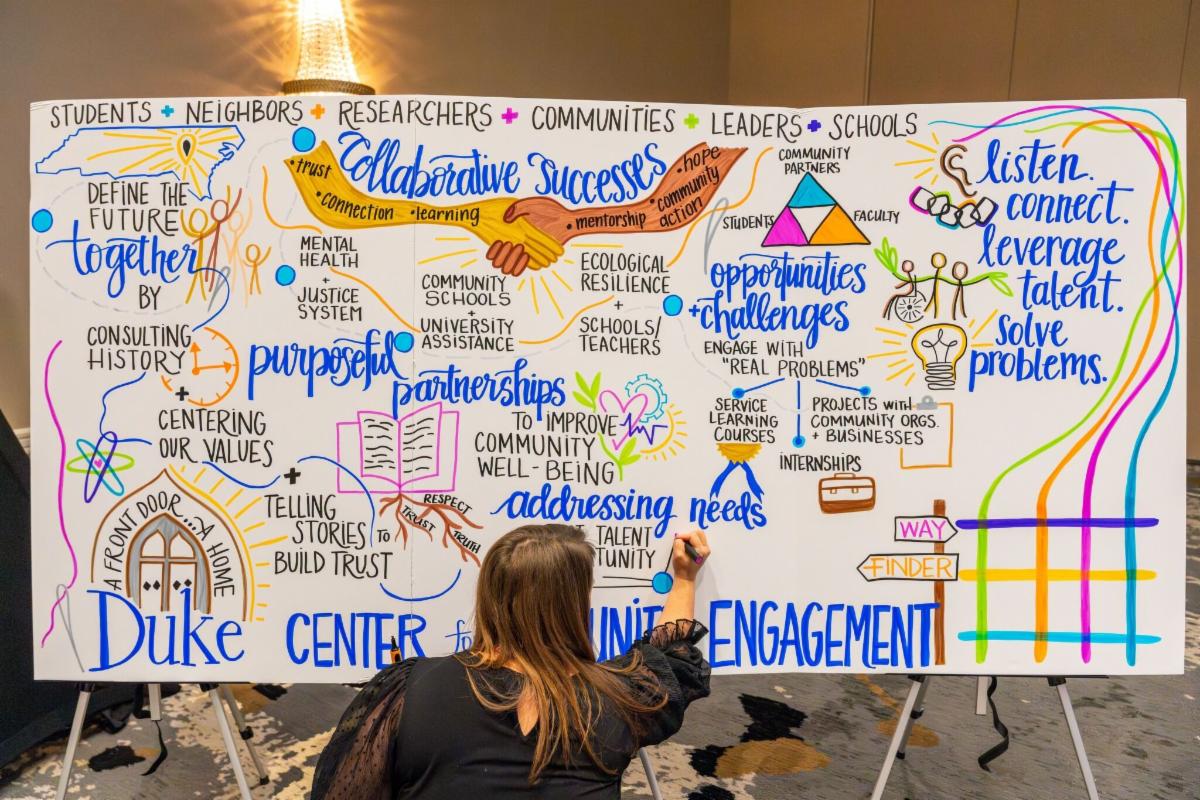 STUDENTS + NEIGHBORS + RESEARCHERS + COMMUNITIES + LEADERS + SCHOOLS
DEFINE THE
FUTURE
together
BY
CONSULTING
HISTORY
+
CENTERING
OUR VALUES
+
TELLING
STORIES TO
BUILD TRUST
A FRONT DOOR...A HOME
Collaborative Successes
•trust
•connection •learning
•hope
•community
action
•mentorship
MENTAL
HEALTH
+
JUSTICE
SYSTEM
COMMUNITY
SCHOOLS
+
UNIVERSITY
ASSISTANCE
ECOLOGICAL
RESILIENCE
+
SCHOOLS/
TEACHERS
purposeful
partnerships
TO IMPROVE
COMMUNITY
WELL-BEING
RESPECT
TRUST
TRUTH
addressing needs
TALENT
COMMUNITY
PARTNERS
STUDENTS
FACULTY
opportunities
+challenges
ENGAGE WITH
"REAL PROBLEMS"
SERVICE
LEARNING
COURSES
PROJECTS with
COMMUNITY ORGS.
+ BUSINESSES
INTERNSHIPS
listen.
connect.
leverage
talent.
solve
problems.
WAY
FINDER
Duke CENTER ENGAGEMENT